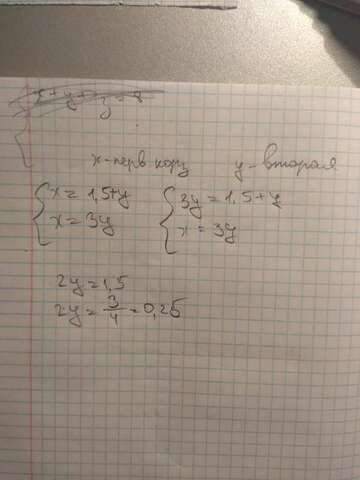 x - перв корз y - вторая
{ x = 1,5+y { 3y = 1,5+y
x = 3y x = 3y
2y = 1,5
2y = 3/4 = 0,25